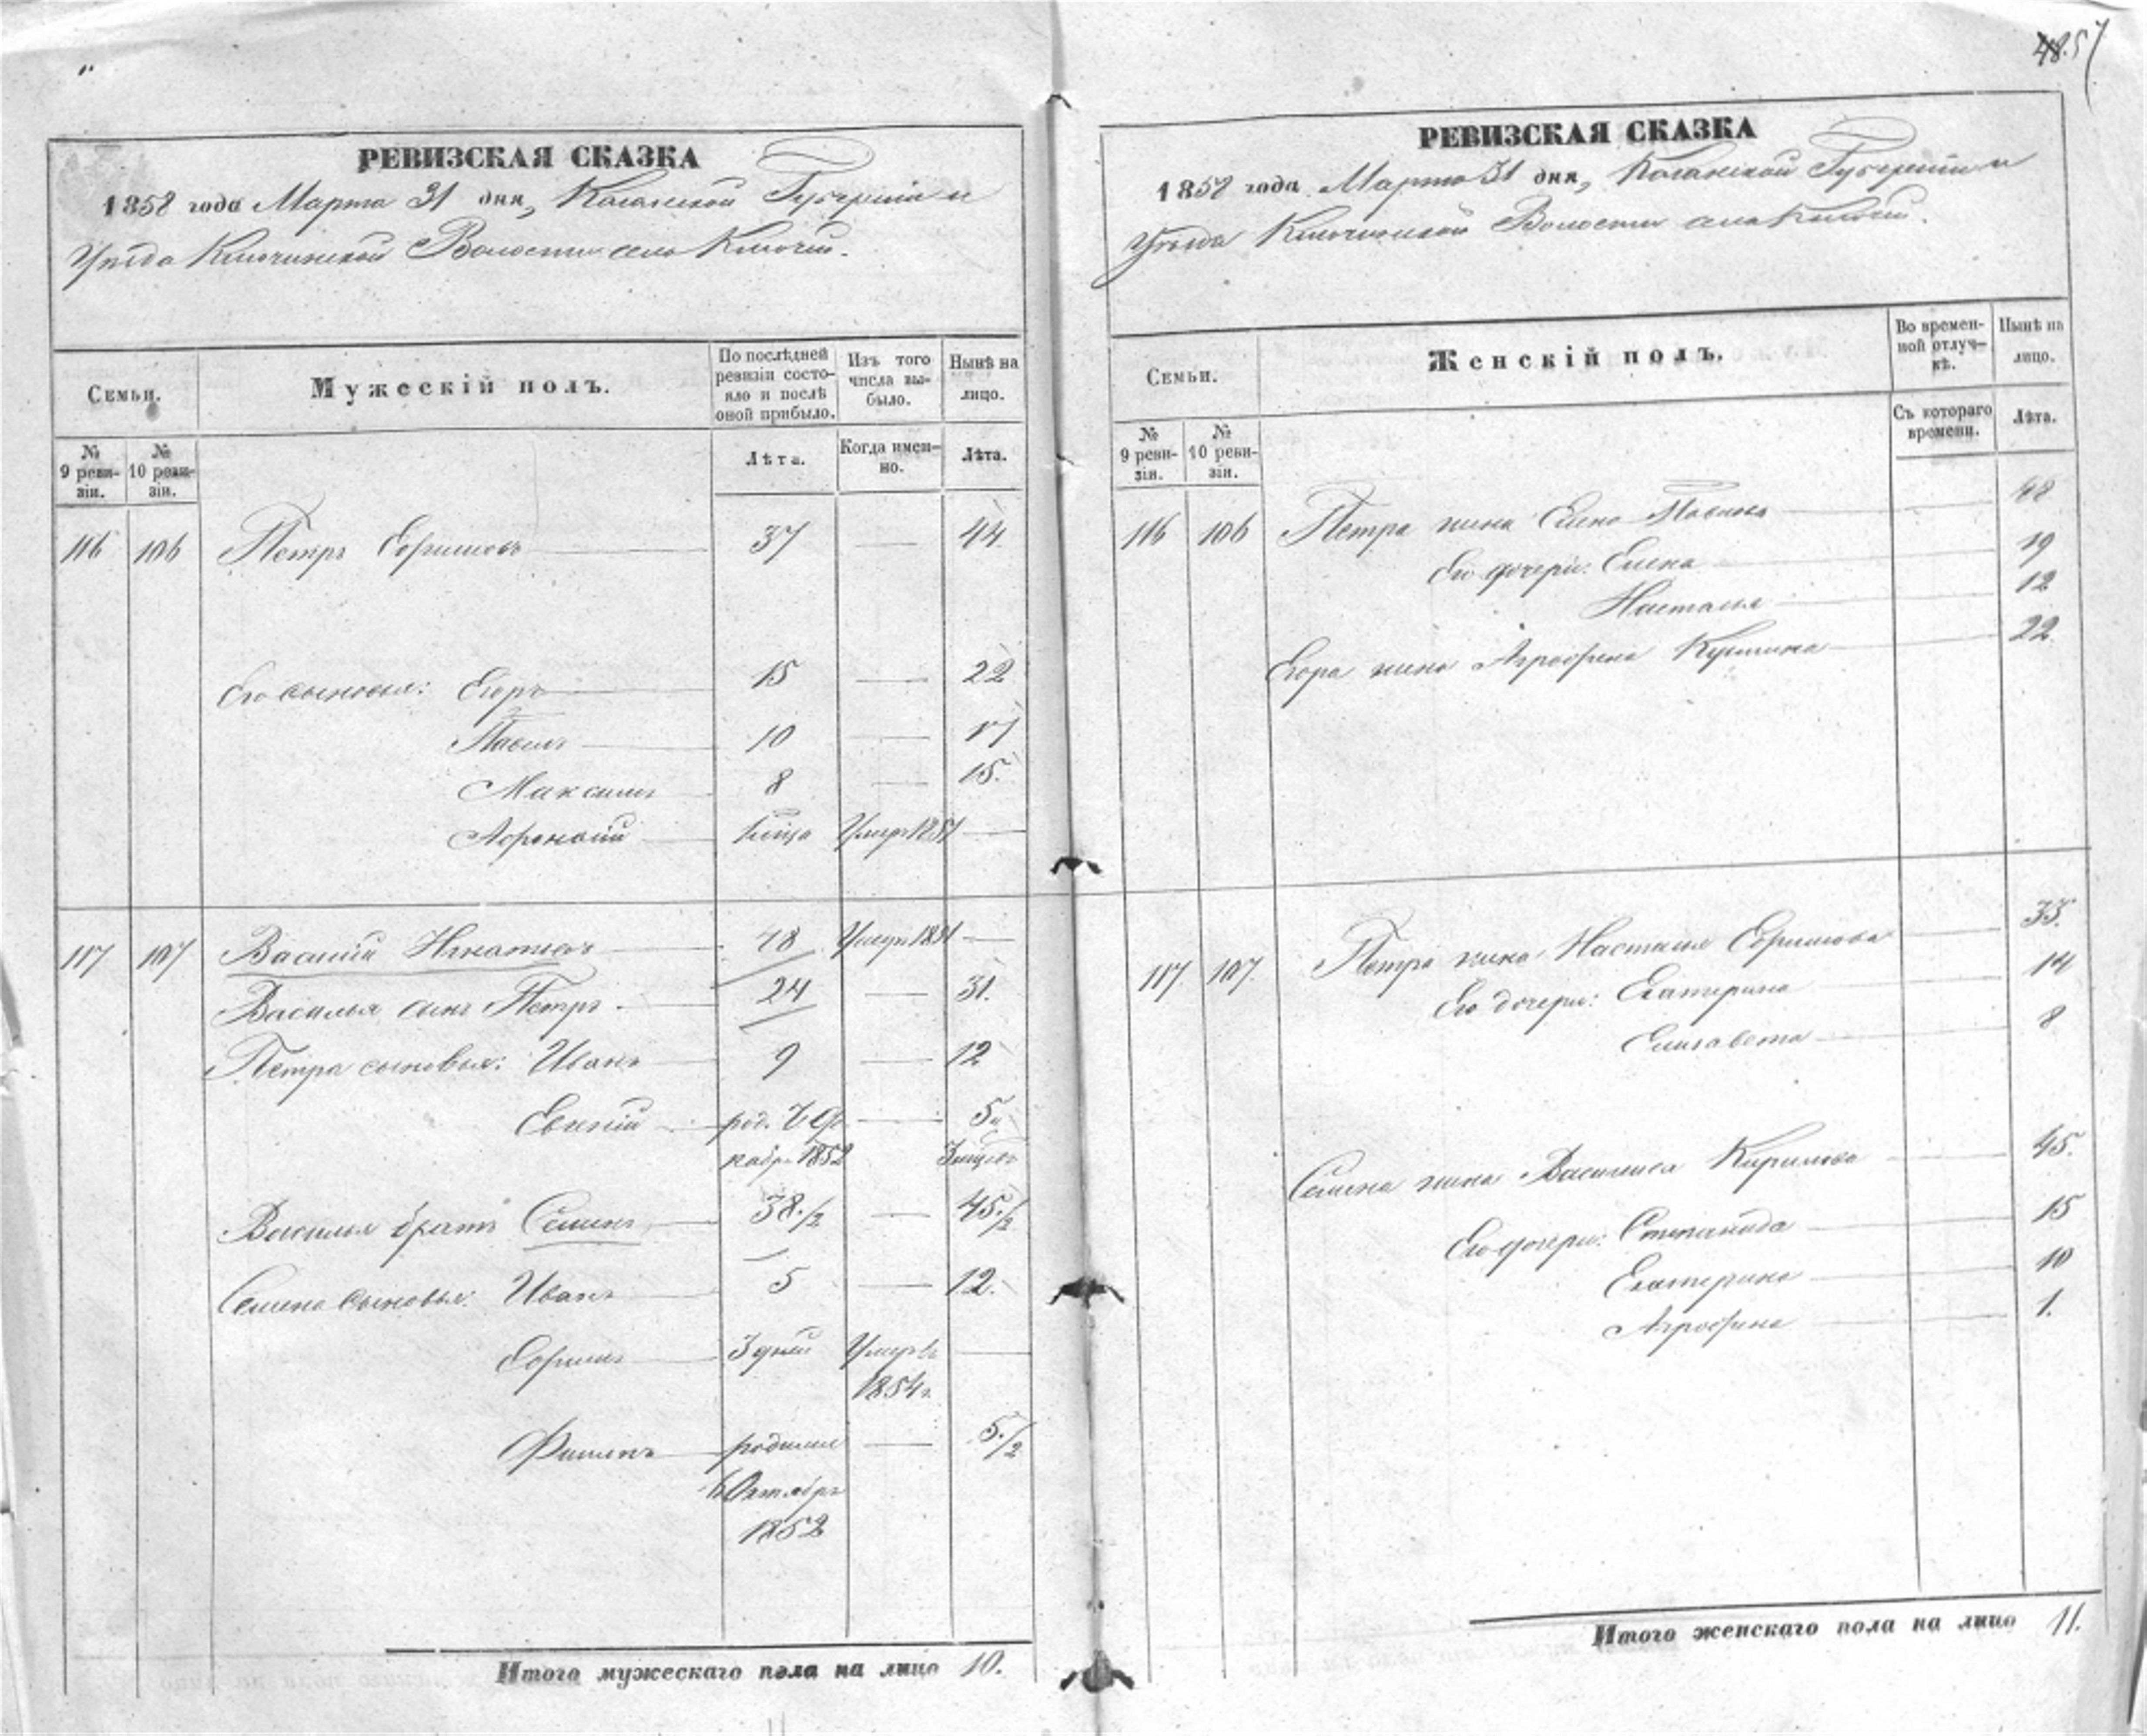 48. 57
РЕВИЗСКАЯ СКАЗКА
1858 года Марта 31 дня, Казанской Губерніи и
Уѣзда Ключинской Волости села Ключей.
Семьи.
Мужескій полъ.
По послѣдней ревизіи состояло и послѣ оной прибыло.
Изъ того числа выбыло.
Нынѣ на лицо.
№ 9 ревизіи.
№ 10 ревизіи.
Лѣта.
Когда именно.
Лѣта.
116 106 Петръ Ефимовъ 37 — 44
Его сыновья: Егоръ 15 — 22
Павелъ 10 — 17
Максимъ 8 — 15.
Афонасій Умеръ 1851 —
117 107 Василій Игнатьевъ 48 Умеръ 1851 —
Василья сынъ Петръ 24 — 31.
Петра сыновья: Иванъ 9 — 12
Евгеній род. — 5 и
1852
Василья братъ Семенъ 38.½ — 45.½
Семена сыновья: Иванъ 5 — 12.
Ефимъ 3 дней Умеръ —
1854 г.
Филипъ родился — 5.½
6 Октября
1852
Итого мужескаго пола на лицо 10.
РЕВИЗСКАЯ СКАЗКА
1858 года Марта 31 дня, Казанской Губерніи и
Уѣзда Ключинской Волости села Ключей.
Семьи.
Женскій полъ.
Во временной отлучкѣ.
Нынѣ на лицо.
№ 9 ревизіи.
№ 10 ревизіи.
Съ котораго времени.
Лѣта.
116 106 Петра жена Елена Павлова 48
Его дочери: Елена 19
Насталья 12
Егора жена Агрофена Кузмина 22
117 107 Петра жена Насталья Ефимова 33.
Его дочери: Екатерина 14
Елизавета 8
Семена жена Василиса Кирилова 45.
Его дочери: Степанида 15
Екатерина 10
Агрофена 1.
Итого женскаго пола на лицо 11.